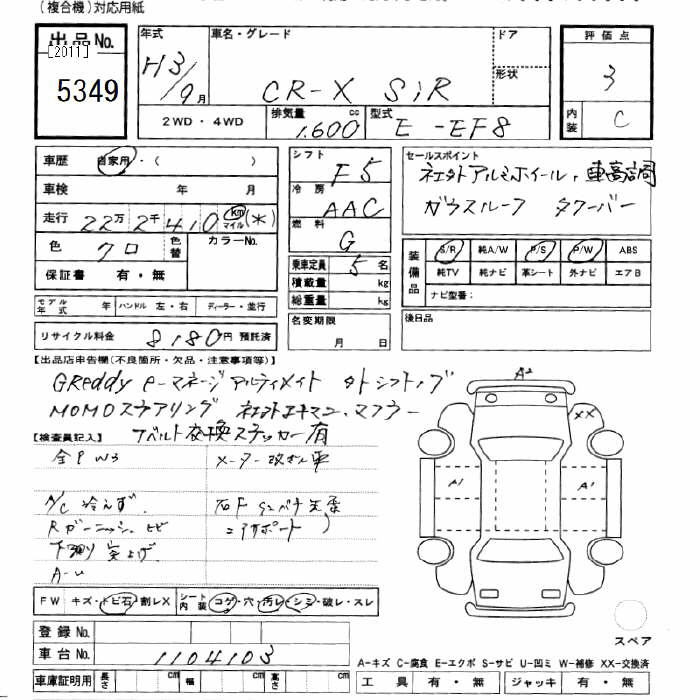 (複合機)対応用紙
出品No.
[2011]
5349
年式
H3/9月
車名・グレード
CR-X SiR
ドア
形状
評価点
3
内装
C
2WD・4WD
排気量 1.600 cc
型式 E-EF8
車歴 自家用・( )
車検 年 月
走行 22万2千410 km マイル (*)
色 クロ 色替 カラーNo.
保証書 有・無
シフト F5
冷房 AAC
燃料 G
乗車定員 5名
積載量 kg
総重量 kg
セールスポイント
社外アルミホイール,車高調
ガラスルーフ タワーバー
装備品
S/R 純A/W P/S P/W ABS
純TV 純ナビ 革シート 外ナビ エアB
ナビ型番:
モデル年式 年 ハンドル 左・右 ディーラー・並行
名変期限
月 日
後日品
リサイクル料金 8180円 預託済
【出品店申告欄(不良箇所・欠品・注意事項等)】
GReddy e-マネージアルティメイト 外シフトノブ
MOMOステアリング 社外エキマニ、マフラー
Tベルト交換ステッカー有
【検査員記入】
全P W3
メーター改ざん車
A/C 冷えず.
Rガーニッシュ ヒビ
下廻り 突上げ.
A-U
A2
XX
A1
A1
FW キズ・トビ石・割レX
シート内装 コゲ・穴・汚レ・シミ・破レ・スレ
登録No.
車台No. 1104103
スペア
A-キズ C-腐食 E-エクボ S-サビ U-凹ミ W-補修 XX-交換済
車庫証明用 長さ 幅 高さ
工具 有・無 ジャッキ 有・無